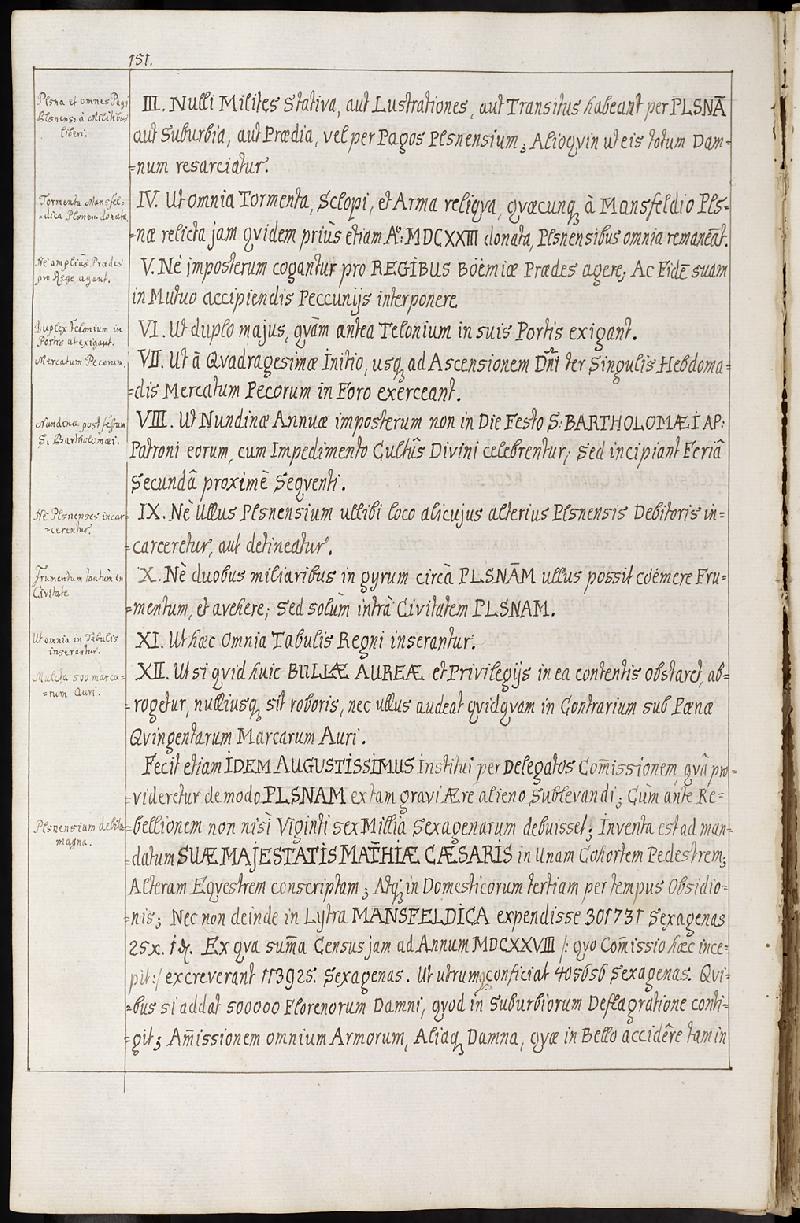 151.
Plsna et omnes Pagi
Plsnens: à Militibus
liberi.
III. Nulli Milites Stativa, aut Lustrationes, aut Transitus habeant per PLSNĀ
aut Suburbia, aut Prædia, vel per Pagos Plsnensium; Alioqvin ut eis totum Dam=
=num resarciatur.
Tormenta Mansfel=
=dica Plsnen: donata
IV. Ut omnia Tormenta, Sclopi, et Arma reliqva, qvæcunqꝫ à Mansfeldio Pls=
=næ relicta jam qvidem priùs etiam Aᵒ: MDCXXIII donata, Plsnensibus omnia remaneāt.
Ne ampliùs Prædes
pro Rege agant.
V. Nè imposterum cogantur pro REGIBUS Böemiæ Prædes agere; Ac Fidē suam
in Mutuo accipiendis Peccunijs interponere
Duplex Telonium in
Portis ut exigant.
VI. Ut duplo majus, qvàm antea Telonium in suis Portis exigant.
Mercatum Pecorum.
VII. Ut à Qvadragesimæ Initio, usqꝫ ad Ascensionem Dn̄i ter Singulis Hebdoma=
=dis Mercatum Pecorum in Foro exerceant.
Nundinæ post festum
S. Bartholomæi.
VIII. Ut Nundinæ Annuæ imposterum non in Die Festo S: BARTHOLOMÆI AP:
Patroni eorum, cum Impedimento Cultûs Divini celebrentur; Sed incipiant Feriâ
Secundâ proximè Seqventi.
Nè Plsnenses incar=
=cerentur.
IX. Nè Ullus Plsnensium ullibi loco alicujus alterius Plsnensis Debitoris in=
=carceretur, aut detineatur.
Frumentum tantùm in
Civitate
X. Nè duobus miliaribus in gyrum circà PLSNĀM ullus possit coëmere Fru=
=mentum, et avehere; Sed solùm intrà Civitatem PLSNAM.
Ut omnia in Tabulis
inserantur.
XI. Ut hæc Omnia Tabulis Regni inserantur.
Mulcta 500 marca=
=rum Auri.
XII. Ut si qvid huic BULLÆ AUREÆ et Privilegijs in ea contentis obstaret, ab=
=rogetur, nulliusqꝫ sit roboris, nec ullus audeat qvidqvam in Contrarium sub Pœnâ
Qvingentarum Marcarum Auri.
Fecit etiam IDEM AUGUSTISSIMUS Institui per Delegatos Com̄issionem, qvâ pro=
=videretur de modo PLSNAM ex tam gravi Ære alieno Sublevandi; Cùm ante Re=
Plsnensium debita
magna.
=bellionem non nisi Viginti sex Millia Sexagenarum debuisset; Inventa est ad man=
=datum SUÆ MAJESTATIS MATHIÆ CÆSARIS in Unam Cohortem Pedestrem;
Alteram Eqvestrem conscriptam; Atqꝫ in Domesticorum tertiam per tempus Obsidio=
=nis; Nec non deinde in Lytra MANSFELDICA expendisse 301731 Sexagenas
Ex qva sum̄a Census jam ad Annum MDCXXVIII /: qvo Com̄issio hæc ince=
=pit :/ excreverant 113925. Sexagenas. Ut utrumqꝫ conficiat 405656 Sexagenas. Qvi=
=bus si addat 500000 Florenorum Damni, qvod in Suburbiorum Deflagratione conti=
=git; Am̄issionem omnium Armorum, Aliaqꝫ Damna, qvæ in Bello accidêre tam in